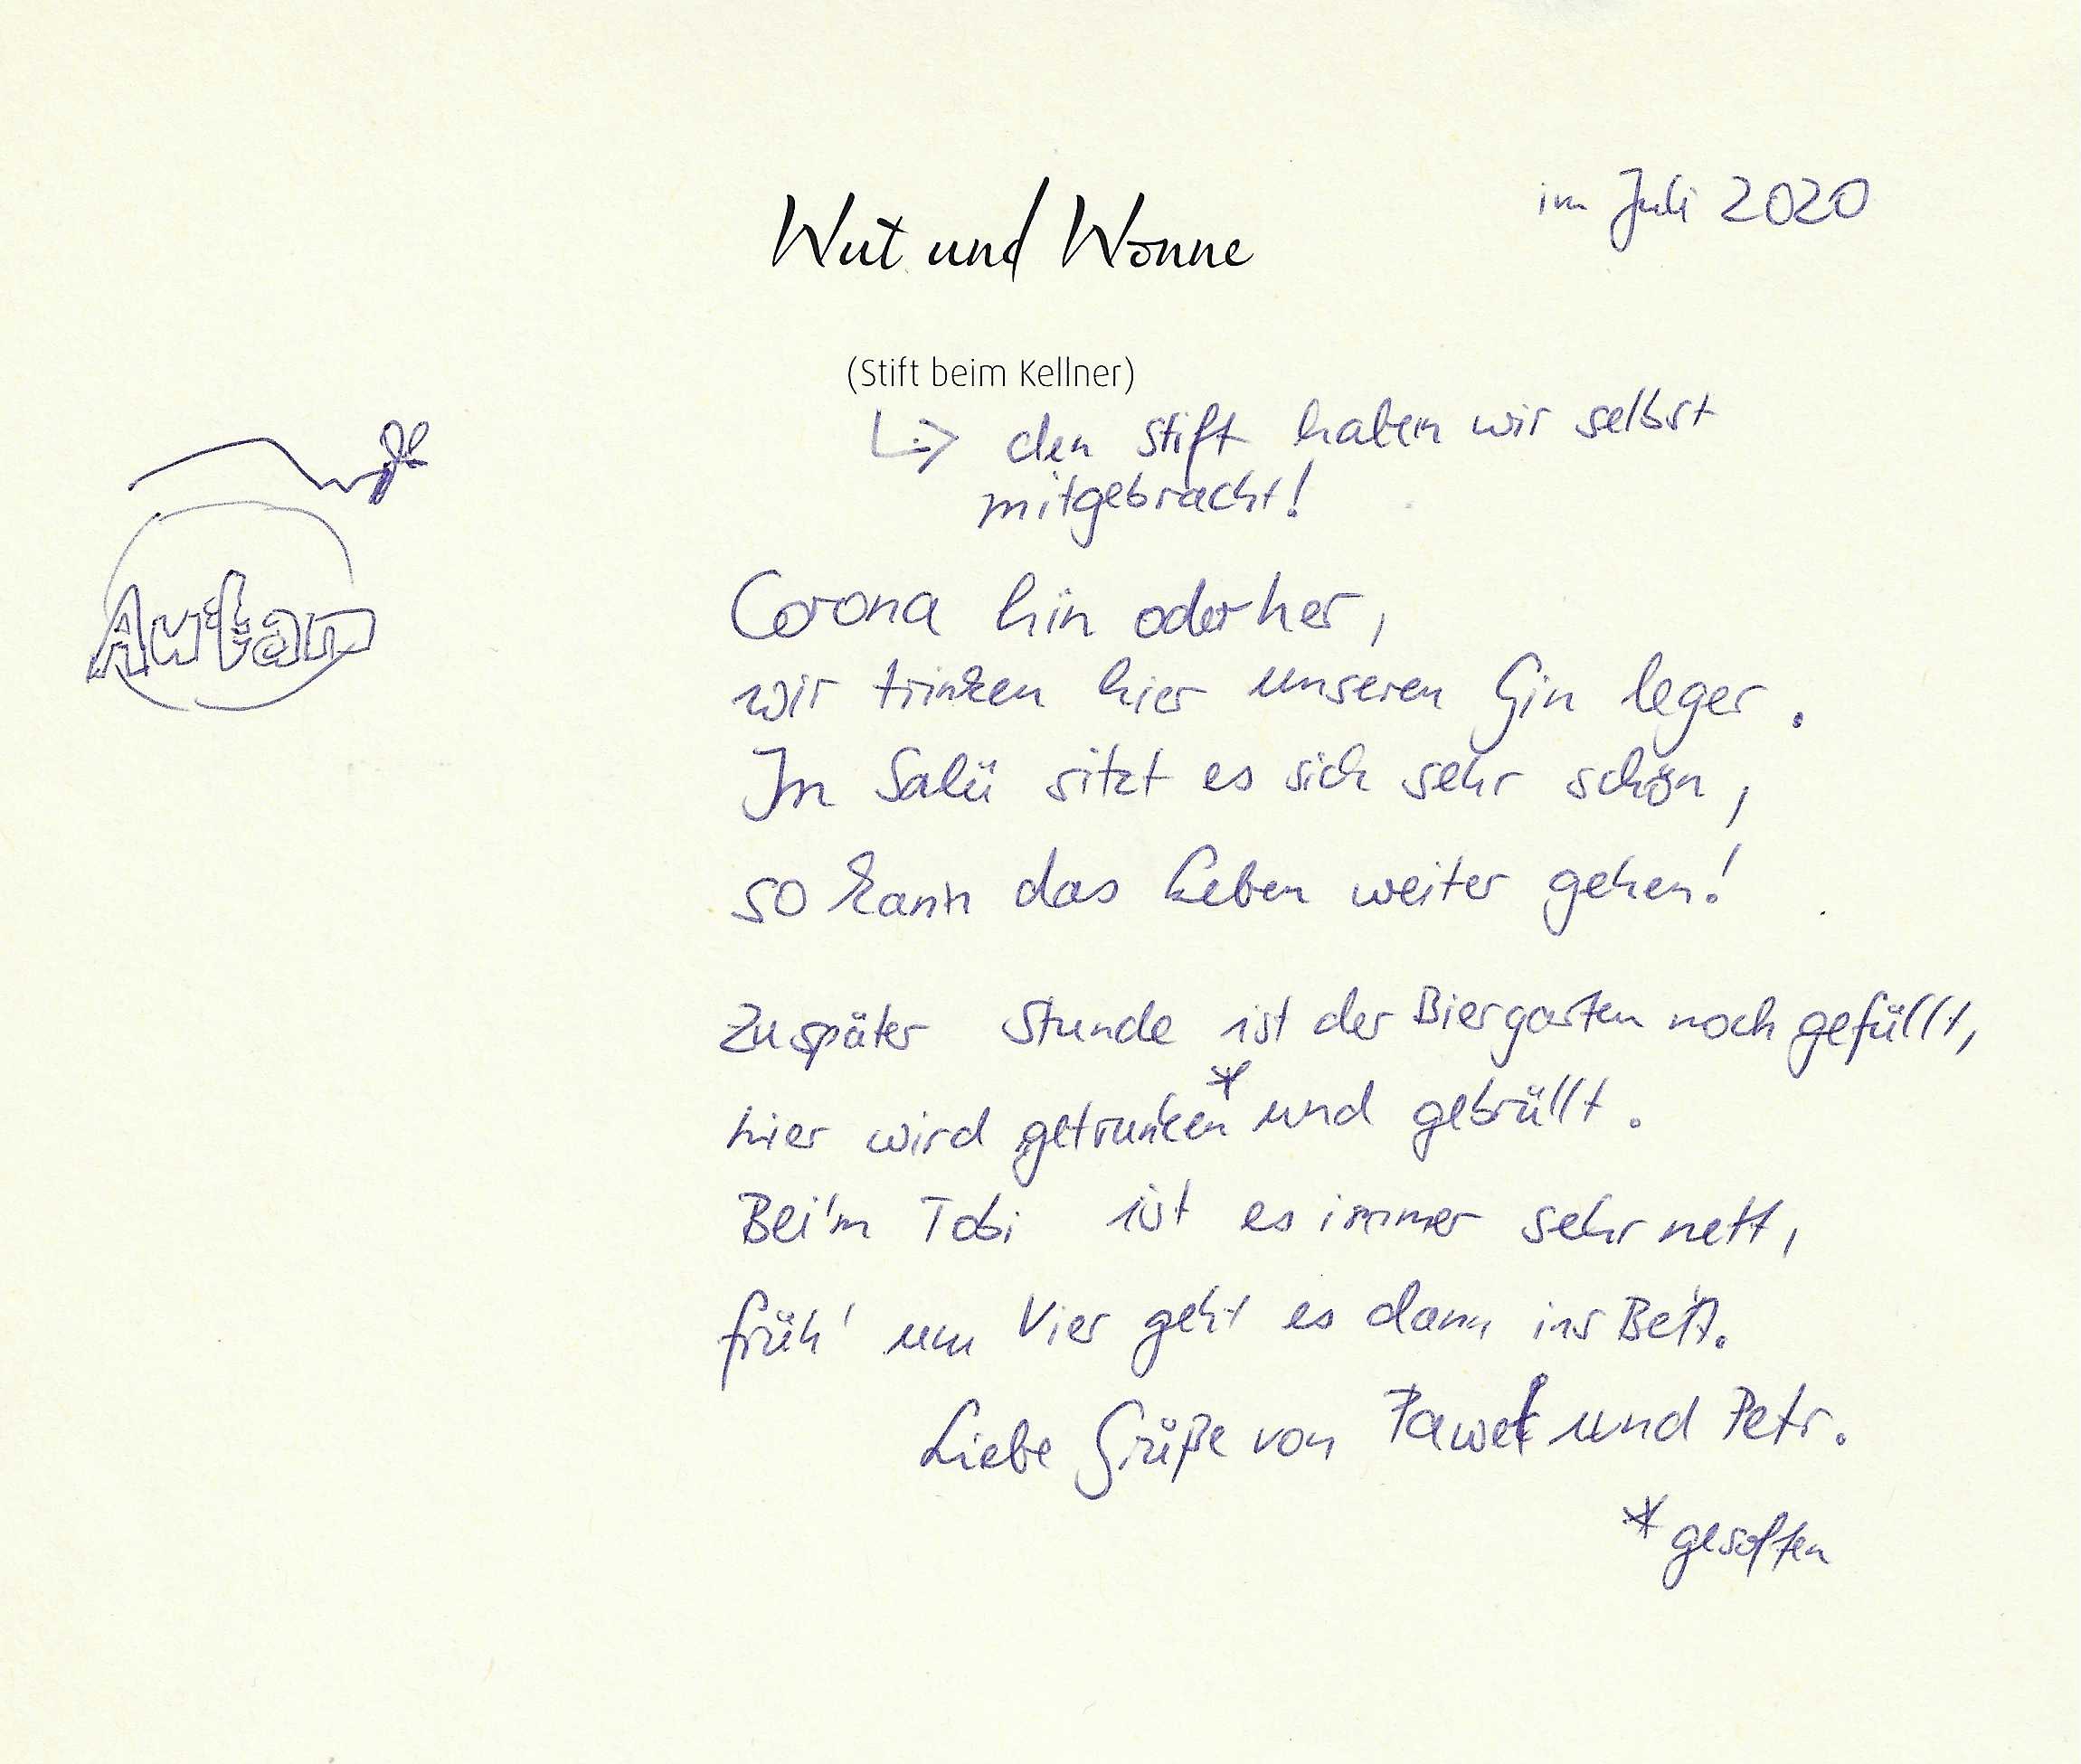 im Juli 2020
Wut und Wonne
(Stift beim Kellner)
den Stift haben wir selbst
mitgebracht!
Autan
Corona hin oder her,
wir trinken hier unseren Gin leger.
Im Salü sitzt es sich sehr schön,
so kann das Leben weiter gehen!
Zu später Stunde ist der Biergarten noch gefüllt,
hier wird getrunken* und gebrüllt.
Bei'm Tobi ist es immer sehr nett,
früh' um Vier geht es dann ins Bett.
Liebe Grüße von Paweł und Petr.
*gesoffen